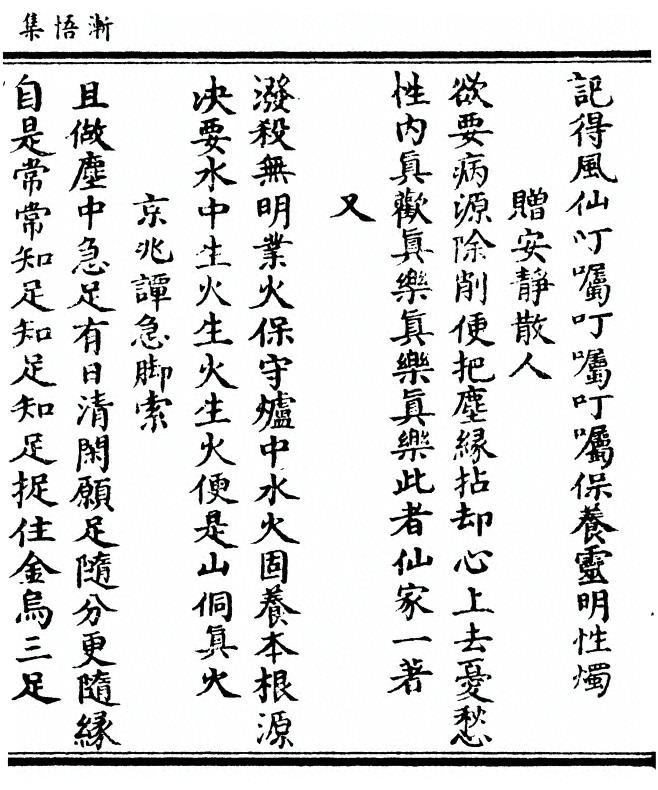 漸悟集
記得風仙叮囑叮囑叮囑保養靈明性燭
贈安靜散人
欲要病源除削便把塵緣拈却心上去憂愁
性內眞歡眞樂眞樂眞樂此者仙家一著
又
潑殺無明業火保守爐中水火固養本根源
决要水中生火生火生火便是山侗眞火
京兆譚急脚索
且做塵中急足有日清閑願足隨分更隨緣
自是常常知足知足知足捉住金烏三足